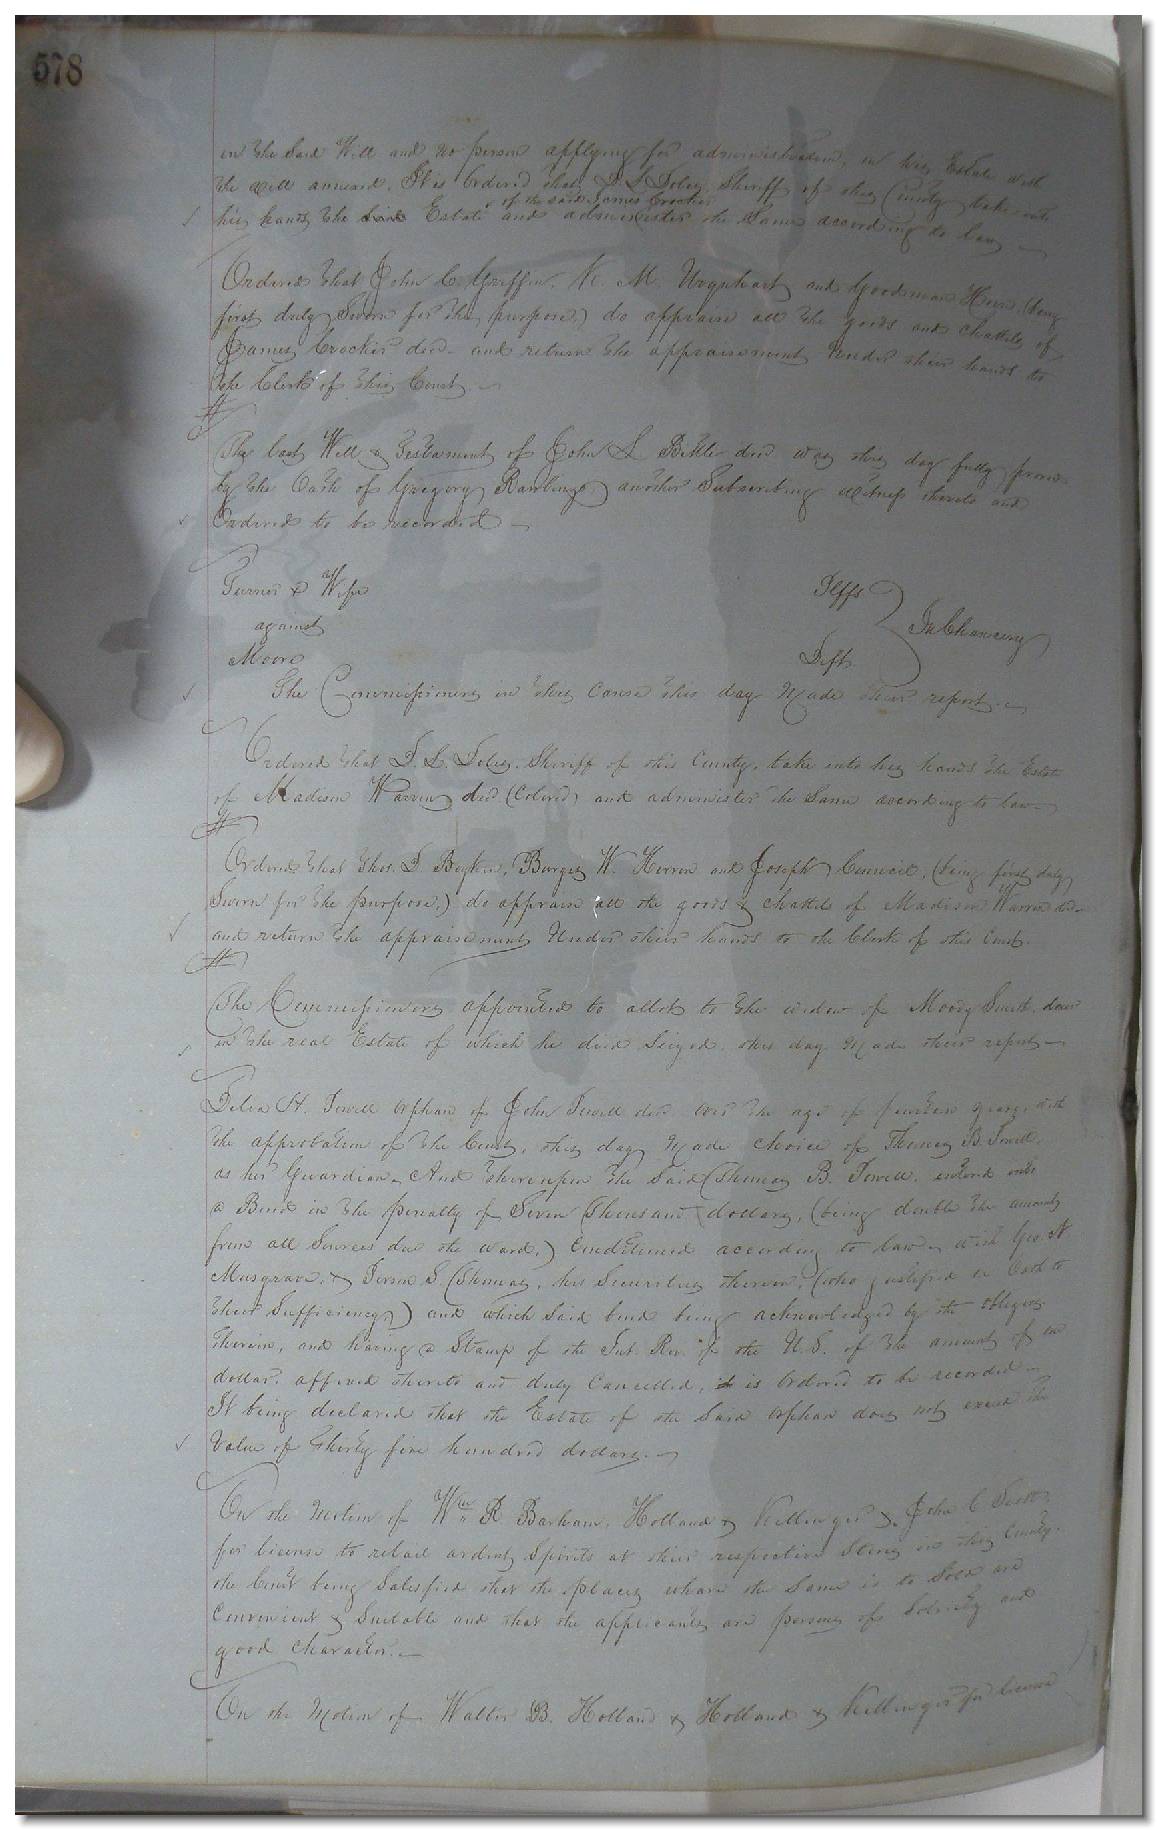 578
in the said Will and no person applying for administration, on his Estate with
the will annexed. It is Ordered that, Sheriff of this County take into
of the said James Crocker
his hands, the Estate and administer the same according to law
Ordered that John C. Griffin, N. M. Urquhart and Goodman (being
first duly Sworn for the purpose,) do appraise all the goods and Chattels of
James Crocker decd. and return the appraisement Under their hands to
the Clerk of this Court
The last Will & Testament of John S. decd was this day fully proven
by the Oath of Gregory Rawlings, another Subscribing Witness thereto and
Ordered to be recorded
Turner & Wife Plffs
against In Chancery
Moore Deft
The Commissioners in this Cause this day Made their report.
Ordered that Sheriff of this County, take into his hands the Estate
of Madison Warren decd (Colored) and administer the Same according to law
Ordered that Thos. Burges W. and Joseph Council, (being first duly
Sworn for the purpose,) do appraise all the goods & chattels of Madison Warren decd
and return the appraisement Under their hands to the Clerk of this Court.
The Commissioners appointed to allot to the widow of Moody Smith, dower
in the real Estate of which he died Seized, this day Made their report
H. orphan of John decd. over the age of fourteen years, with
the approbation of the Court, this day Made choice of Thomas B.
as her Guardian. And thereupon the Said Thomas B. entered into
a Bond in the penalty of Seven Thousand dollars, (being double the amount
from all Sources due the ward,) Conditioned according to law, with Geo. N.
Musgrave, & S. Thomas, his Securities therein, (who justified on Oath to
their Sufficiency) and which Said bond being acknowledged by the obligors
therein, and having a Stamp of the Int. Rev. of the U.S. of the amount of one
dollar, affixed thereto and duly Cancelled, is Ordered to be recorded
It being declared that the Estate of the Said orphan does not exceed the
Value of Thirty five hundred dollars.
On the Motion of Wm R. Barham, Holland & Killinger & John C. Scott,
for license to retail ardent Spirits at their respective Stores in this County.
the Court being Satisfied that the places where the Same is to Sold are
Convenient & Suitable and that the applicants are persons of Sobriety and
good Character.
On the Motion of Walter B. Holland & Holland & Killinger for license